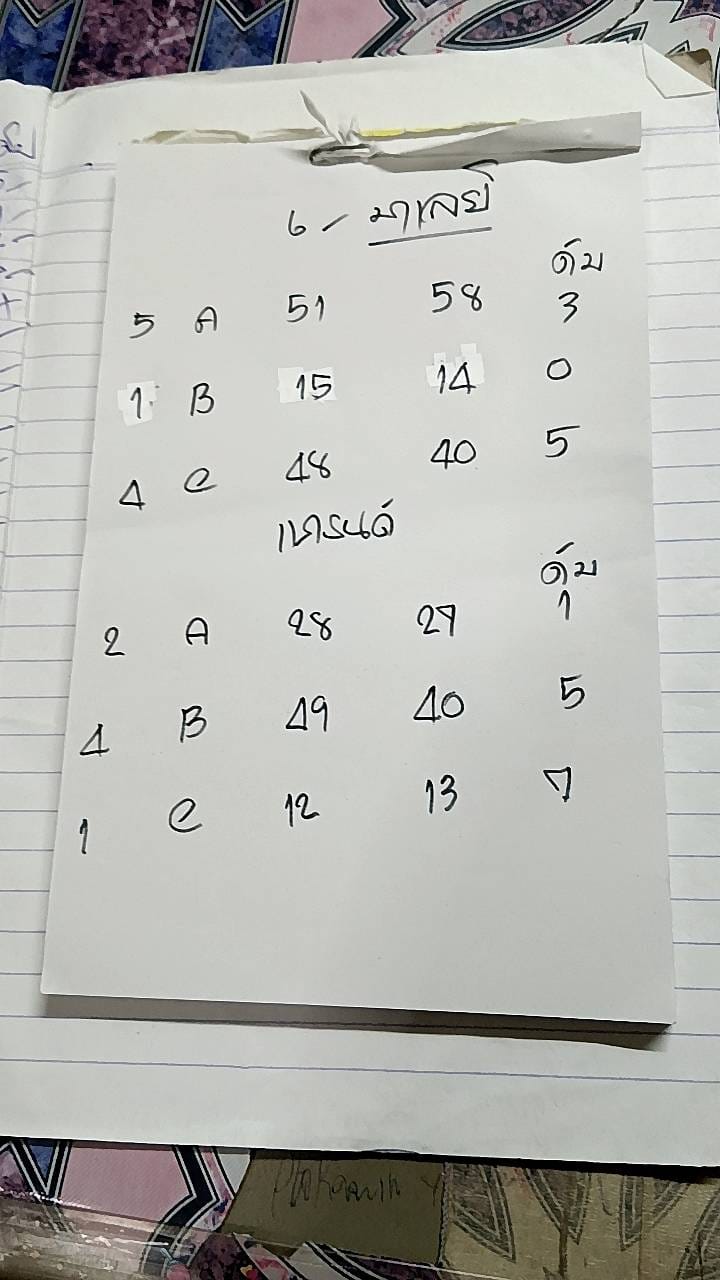 6 - มาเลย์
ดับ
5 A 51 58 3
1 B 15 14 0
4 C 48 40 5
เทรนด์
ดับ
2 A 28 27 1
4 B 49 40 5
1 C 12 13 7